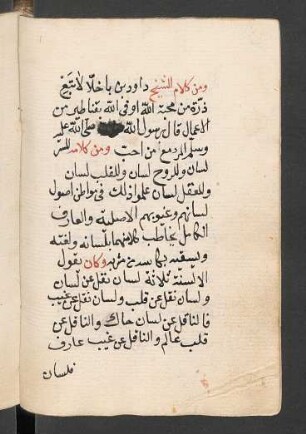 ومن كلام الشيخ داود بن باخلا لا تبغ
ذرة من محبة الله او في الله بقناطير من
الاعمال قال رسول الله صلى الله عليه
وسلم المرء مع من احب ومن كلامه للسر
لسان وللروح لسان وللقلب لسان
وللعقل لسان علموا ذلك في مواطن اصول
لسانهم وغيوبهم الاصلية والعارف
الكامل يخاطب كلا منها بلسانه ولغته
ويسقيه بكاسه من وكان يقول
الالسنة ثلاثة لسان نقل عن لسان
ولسان نقل عن قلب ولسان نقل عن غيب
فالناقل عن لسان حاك والناقل عن
قلب عالم والناقل عن غيب عارف
فلسان